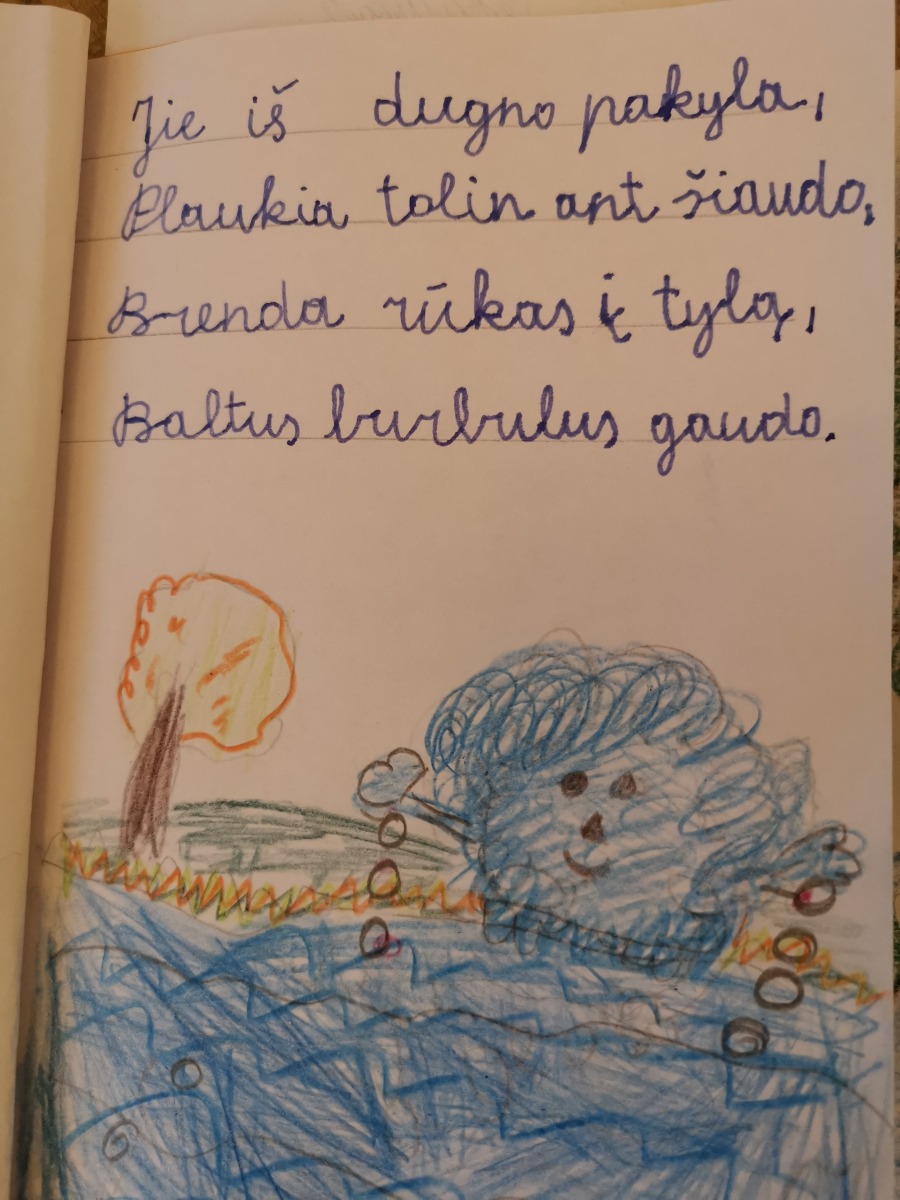 Jie iš dugno pakyla,
Plaukia tolin ant šiaudo,
Brenda rūkas į tylą,
Baltus burbulus gaudo.